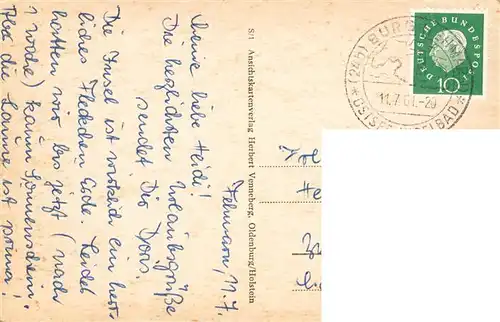 Fehmarn, 11.7.
Meine liebe Heidi!
Die herzlichsten Urlaubsgrüße
sendet Dir Doris.
Die Insel ist wirklich ein herr-
liches Fleckchen Erde. Leider
hatten wir bis jetzt (nach
1 Woche) kaum Sonnenschein.
Aber die Laune ist prima!
S/1 Ansichtskartenverlag Herbert Vonneberg, Oldenburg/Holstein
(24b) BURG
11.7.61.-20
OSTSEE BAD
DEUTSCHE BUNDESPOST
10